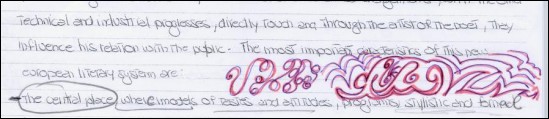 technical and industrial progresses, directly touch and, through the artist or the poet, they
influence his relation with the public. The most important characteristics of this new
european literary system are:
- The central place where models of tastes and attitudes, programms, stylistic and formal